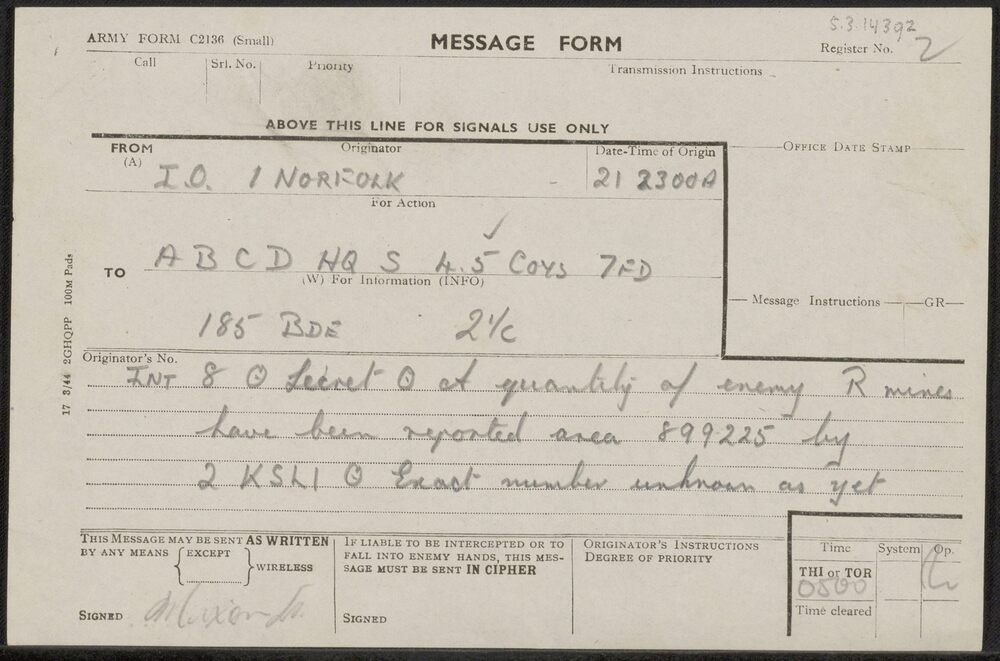 5.3.14392
ARMY FORM C2136 (Small)
MESSAGE FORM
Register No. 2
Call Srl. No. Priority Transmission Instructions
ABOVE THIS LINE FOR SIGNALS USE ONLY
FROM (A) Originator Date-Time of Origin
I.O. 1 NORFOLK 21 2300A
OFFICE DATE STAMP
For Action
TO A B C D HQ S 4.5 Coys 7FD
(W) For Information (INFO)
Message Instructions GR
185 BDE 2 i/c
Originator's No.
INT 8 O Secret O A quantity of enemy R mines
have been reported area 899225 by
2 KSLI O Exact number unknown as yet
17 3/44 2GHQPP 100M Pads
THIS MESSAGE MAY BE SENT AS WRITTEN
BY ANY MEANS {EXCEPT } WIRELESS
SIGNED
IF LIABLE TO BE INTERCEPTED OR TO
FALL INTO ENEMY HANDS, THIS MES-
SAGE MUST BE SENT IN CIPHER
SIGNED
ORIGINATOR'S INSTRUCTIONS
DEGREE OF PRIORITY
Time System Op.
THI or TOR
0500
Time cleared